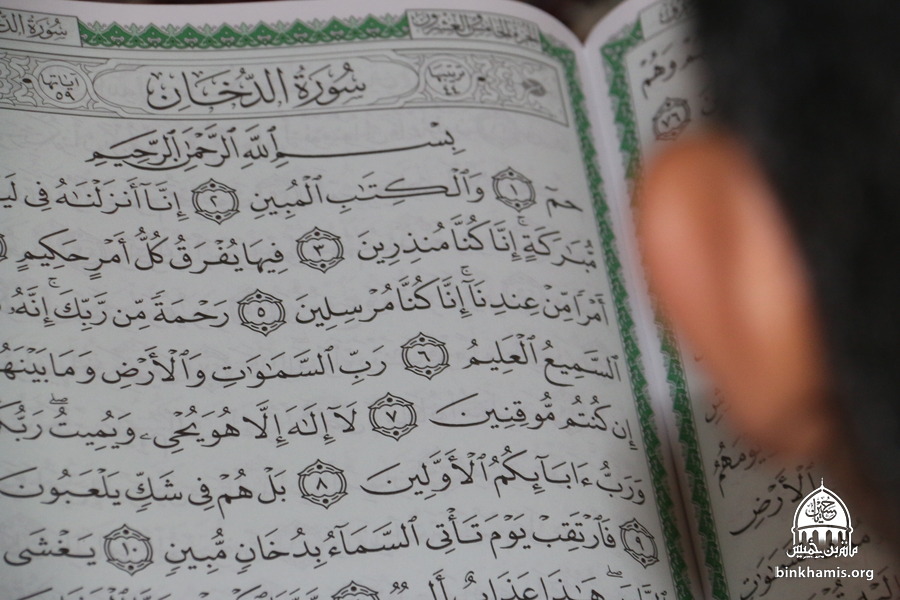 الجزء الخامس والعشرون
سُورَةُ الدُّخَانِ
ترتيبها ٤٤
سُورَةُ الدُّخَانِ
آياتها ٥٩
بِسْمِ ٱللَّهِ ٱلرَّحْمَٰنِ ٱلرَّحِيمِ
حمٓ ١ وَٱلْكِتَٰبِ ٱلْمُبِينِ ٢ إِنَّآ أَنزَلْنَٰهُ فِى
مُّبَٰرَكَةٍ ۚ إِنَّا كُنَّا مُنذِرِينَ ٣ فِيهَا يُفْرَقُ كُلُّ أَمْرٍ حَكِيمٍ
أَمْرًا مِّنْ عِندِنَآ ۚ إِنَّا كُنَّا مُرْسِلِينَ ٥ رَحْمَةً مِّن رَّبِّكَ ۚ إِنَّهُۥ
ٱلسَّمِيعُ ٱلْعَلِيمُ ٦ رَبِّ ٱلسَّمَٰوَٰتِ وَٱلْأَرْضِ وَمَا بَيْنَهُ
إِن كُنتُم مُّوقِنِينَ ٧ لَآ إِلَٰهَ إِلَّا هُوَ يُحْىِۦ وَيُمِيتُ ۖ رَبُّكُ
وَرَبُّ ءَابَآئِكُمُ ٱلْأَوَّلِينَ ٨ بَلْ هُمْ فِى شَكٍّ يَلْعَبُونَ
٩ فَٱرْتَقِبْ يَوْمَ تَأْتِى ٱلسَّمَآءُ بِدُخَانٍ مُّبِينٍ ١٠ يَغْشَى
هَٰذَا عَذَابٌ
وَهُمْ
٧٦
يَوْمَهُمُ
ٱلْأَرْضِ
مائة بن خميس
binkhamis.org